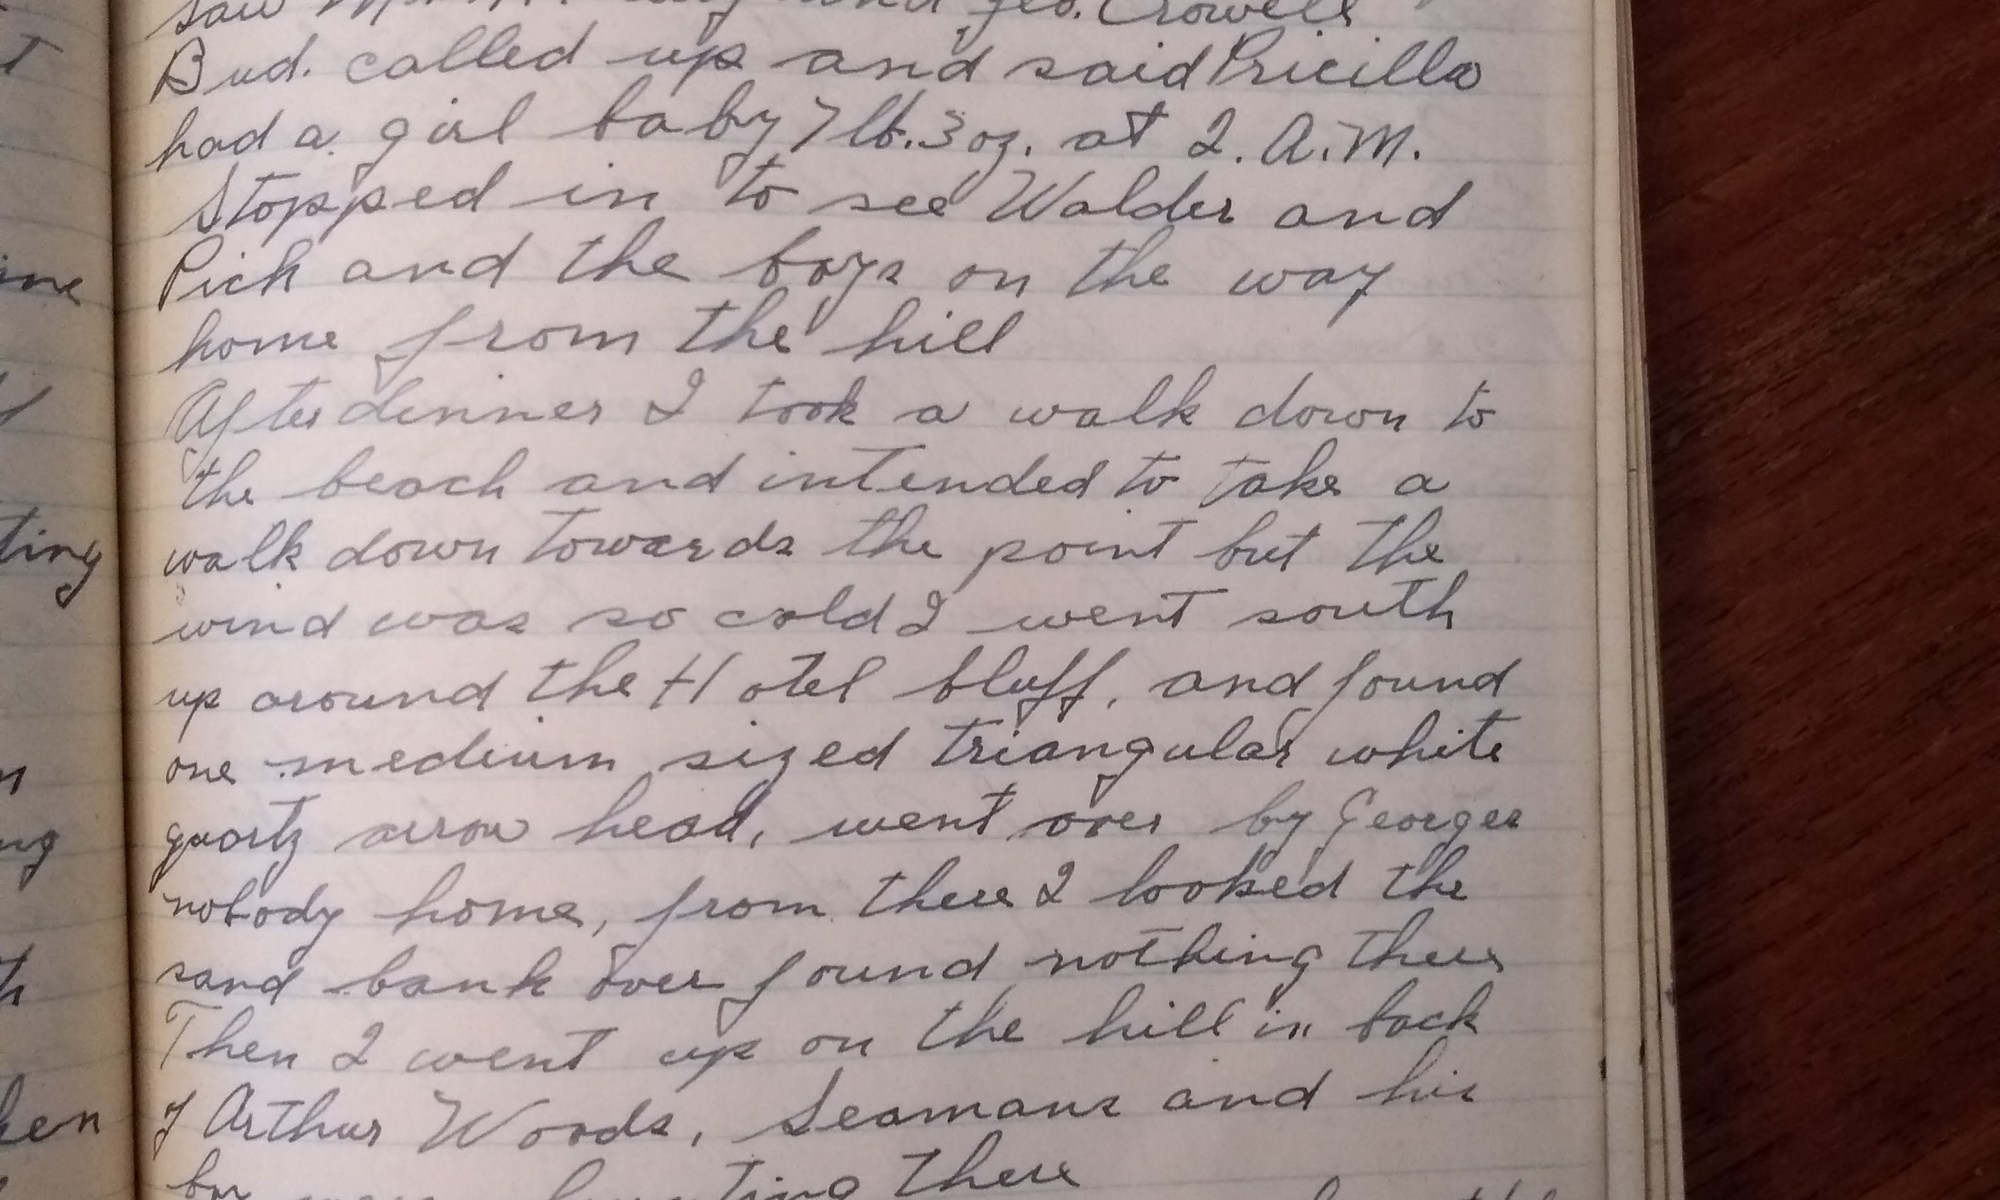 saw and Geo. Crowell
Bud. called up and said Pricilla
had a girl baby 7 lb. 3 oz. at 2. A.M.
Stopped in to see Walder and
Pick and the boys on the way
home from the hill
After dinner I took a walk down to
the beach and intended to take a
walk down towards the point but the
wind was so cold I went south
up around the Hotel bluff, and found
one medium sized triangular white
quartz arrow head, went over by Georges
nobody home, from there I looked the
sand bank over found nothing there
Then I went up on the hill in back
of Arthur Woods, Seamans and his
hunting there
t
ine
ting
n
ng
h